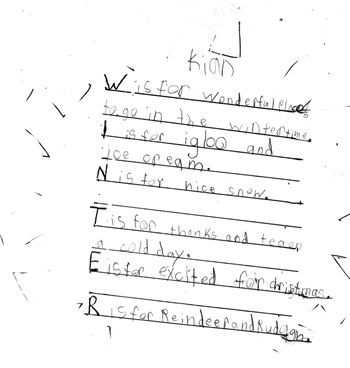 Kian
W is for wonderful places
to go in the wintertime.
I is for igloo and
ice cream.
N is for nice snow.
T is for thanks and
a cold day.
E is for excited for christmas.
R is for Reindeer and Rudolgh.